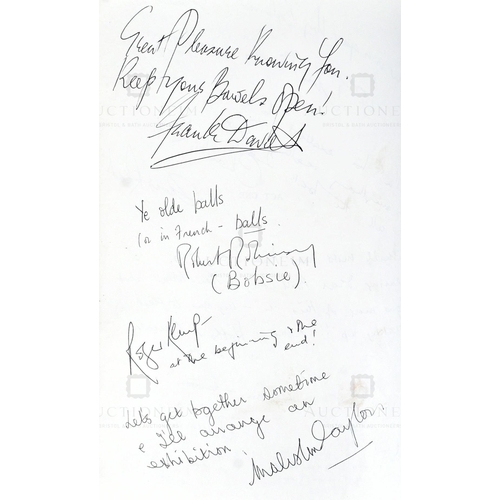 Great Pleasure Knowing You.
Keep your Bowels Open!
Frank Davies
Ye olde balls
(or in French - balls.
Robert Robinson
(Bobsie).
Roger Kemp
at the beginning & the
end!
Lets get together sometime
& I'll arrange an
exhibition!
Malcolm Taylor